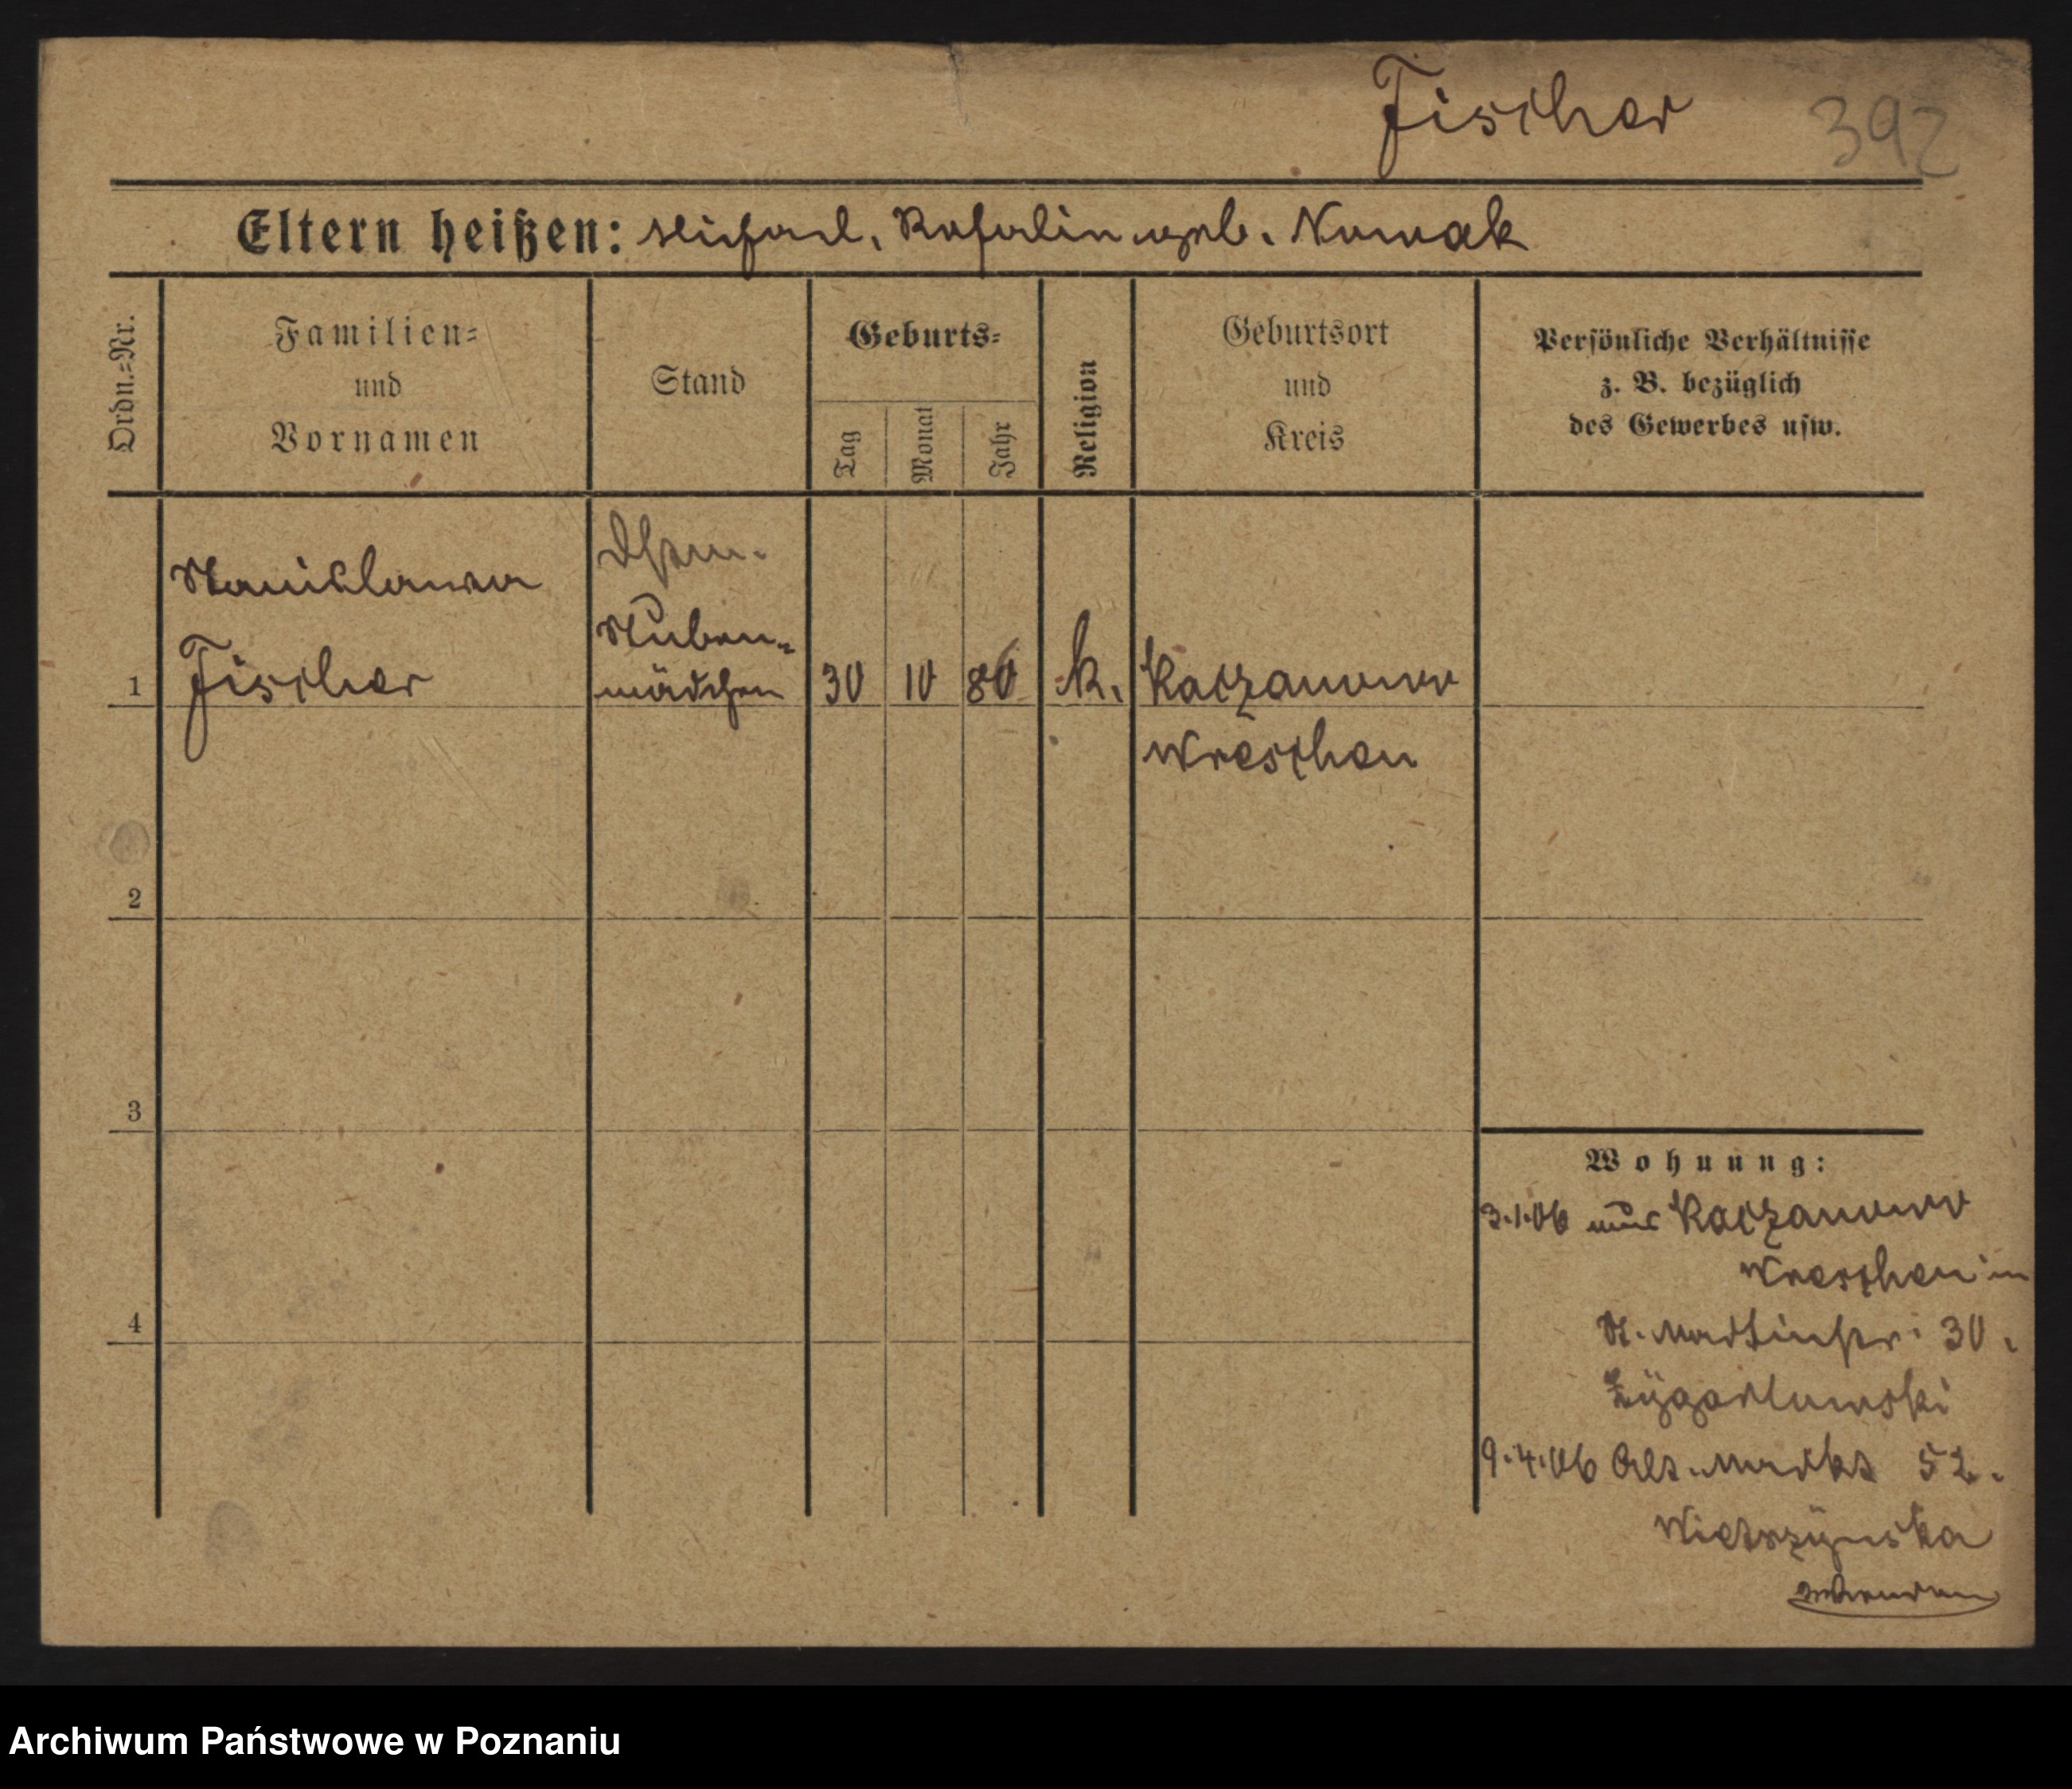 Fischer 392
Eltern heißen: Michael, Katarina geb. Nowak
Ordn.-Nr.
Familien-
und
Vornamen
Stand
Geburts-
Tag
Monat
Jahr
Religion
Geburtsort
und
Kreis
Persönliche Verhältnisse
z. B. bezüglich
des Gewerbes usw.
Stanislawa
Stuben-
1 Fischer mädchen 30 10 80 k. Kaczanowo
Wreschen
2
3
4
Wohnung:
3.1.06 aus Kaczanowo
Wreschen in
St. Martinstr. 30.
9.4.06 Alt. Markt 52.
Archiwum Państwowe w Poznaniu